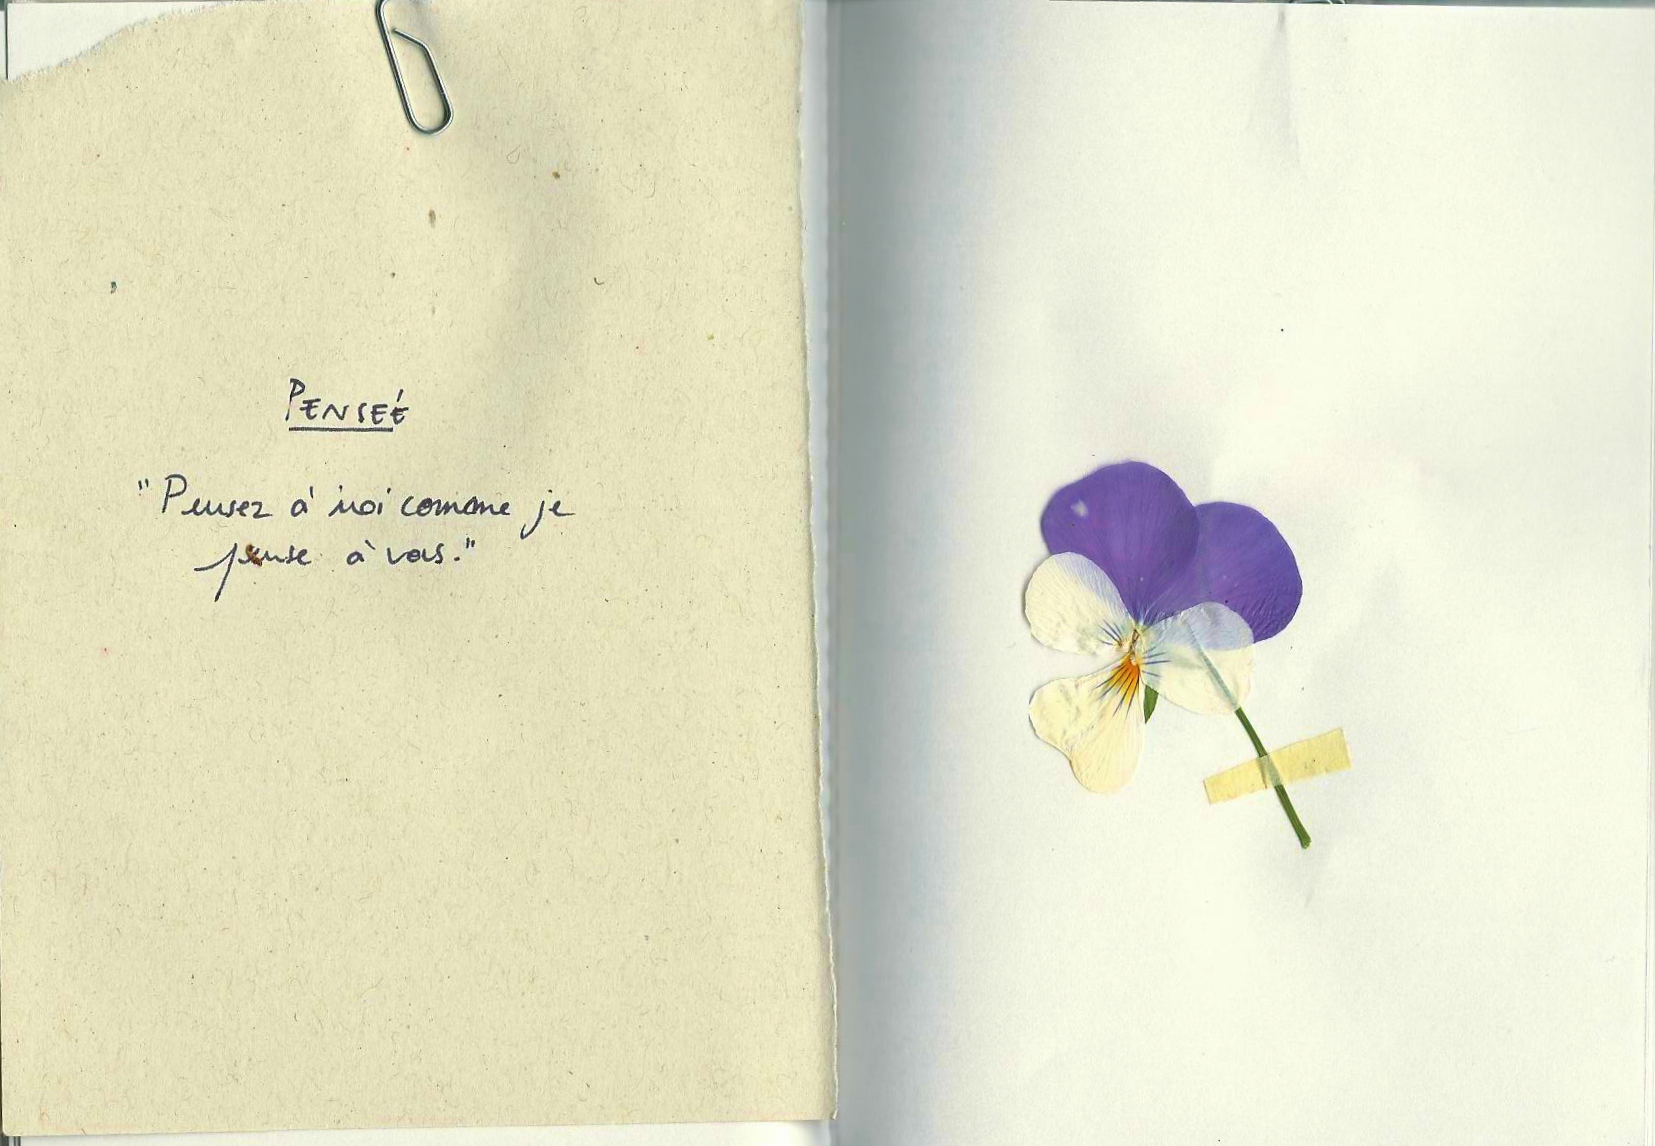 PENSEÉ
"Pensez à moi comme je
pense à vous."